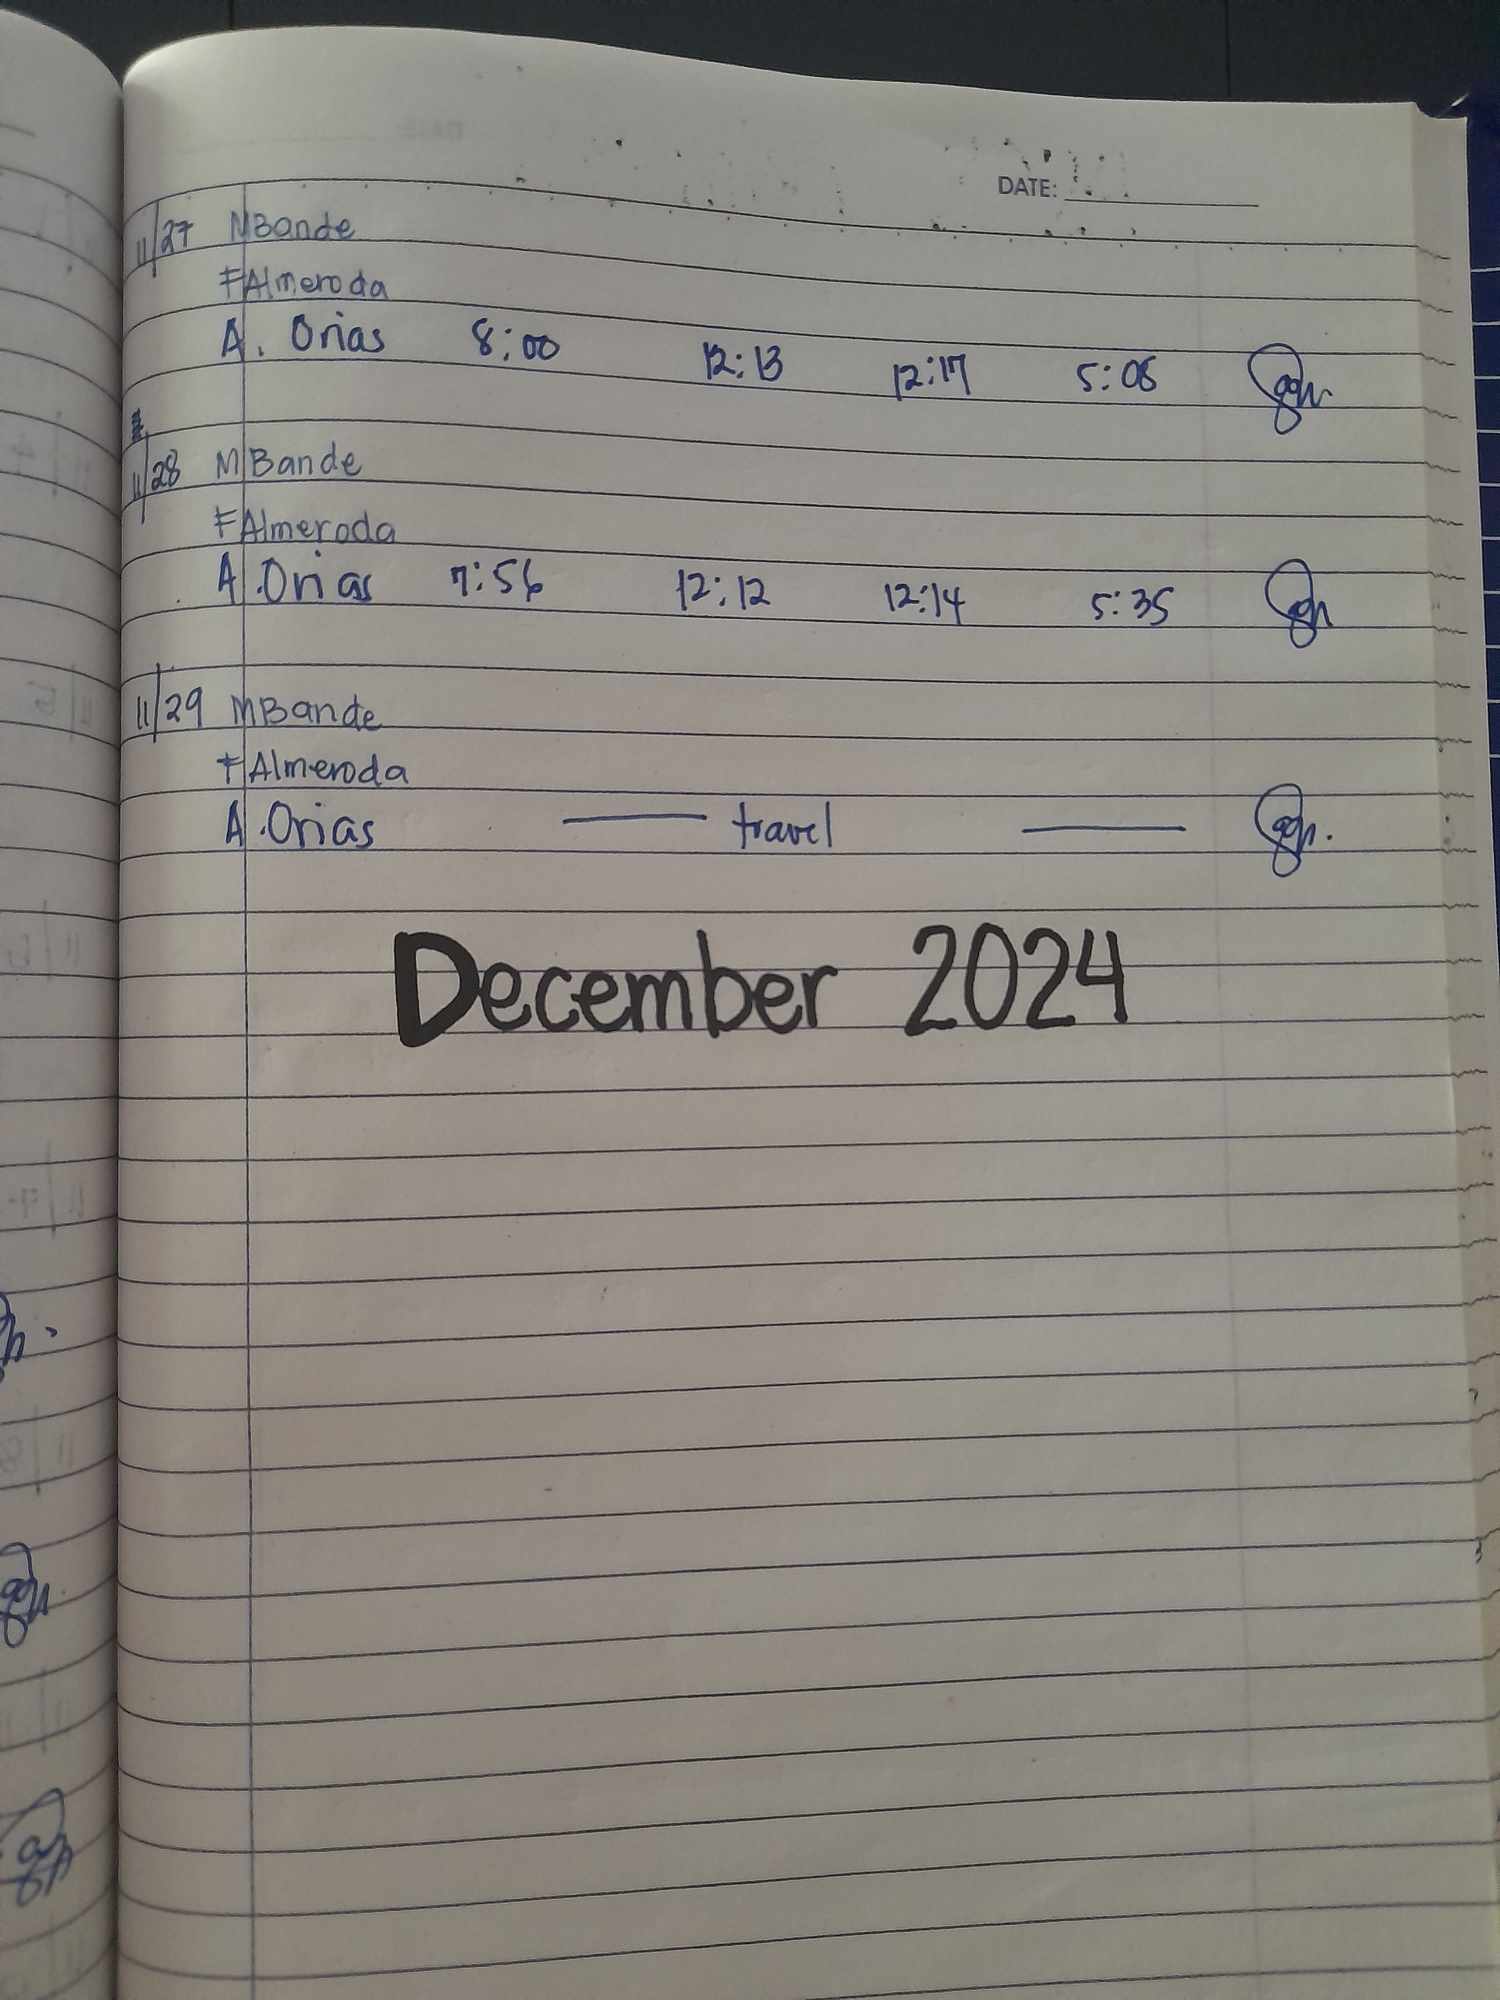 DATE:
11/27 MBande
FAlmeroda
A. Orias 8:00 12:13 12:17 5:08
11/28 MBande
FAlmeroda
A. Orias 7:56 12:12 12:14 5:35
11/29 MBande
FAlmeroda
A. Orias — travel —
December 2024